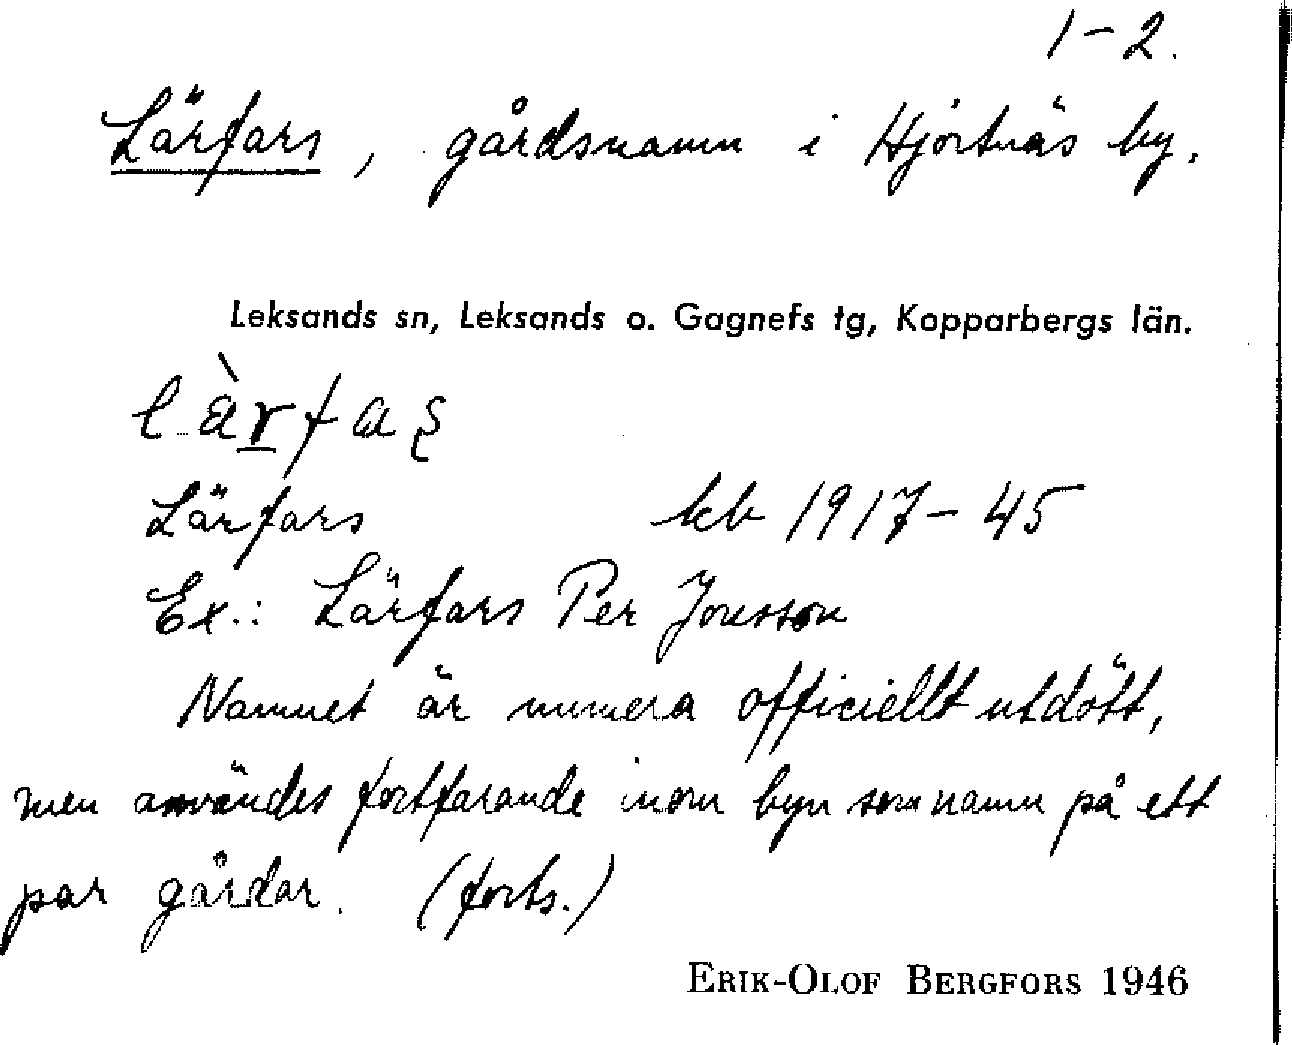 1-2.
Lärfars, gårdsnamn i Hjortnäs by.
Leksands sn, Leksands o. Gagnefs tg, Kopparbergs län.
Lärfars kb 1917-45
Ex.: Lärfars Per Jonsson
Namnet är numera officiellt utdött,
men användes fortfarande inom byn som namn på ett
par gårdar. (forts.)
ERIK-OLOF BERGFORS 1946